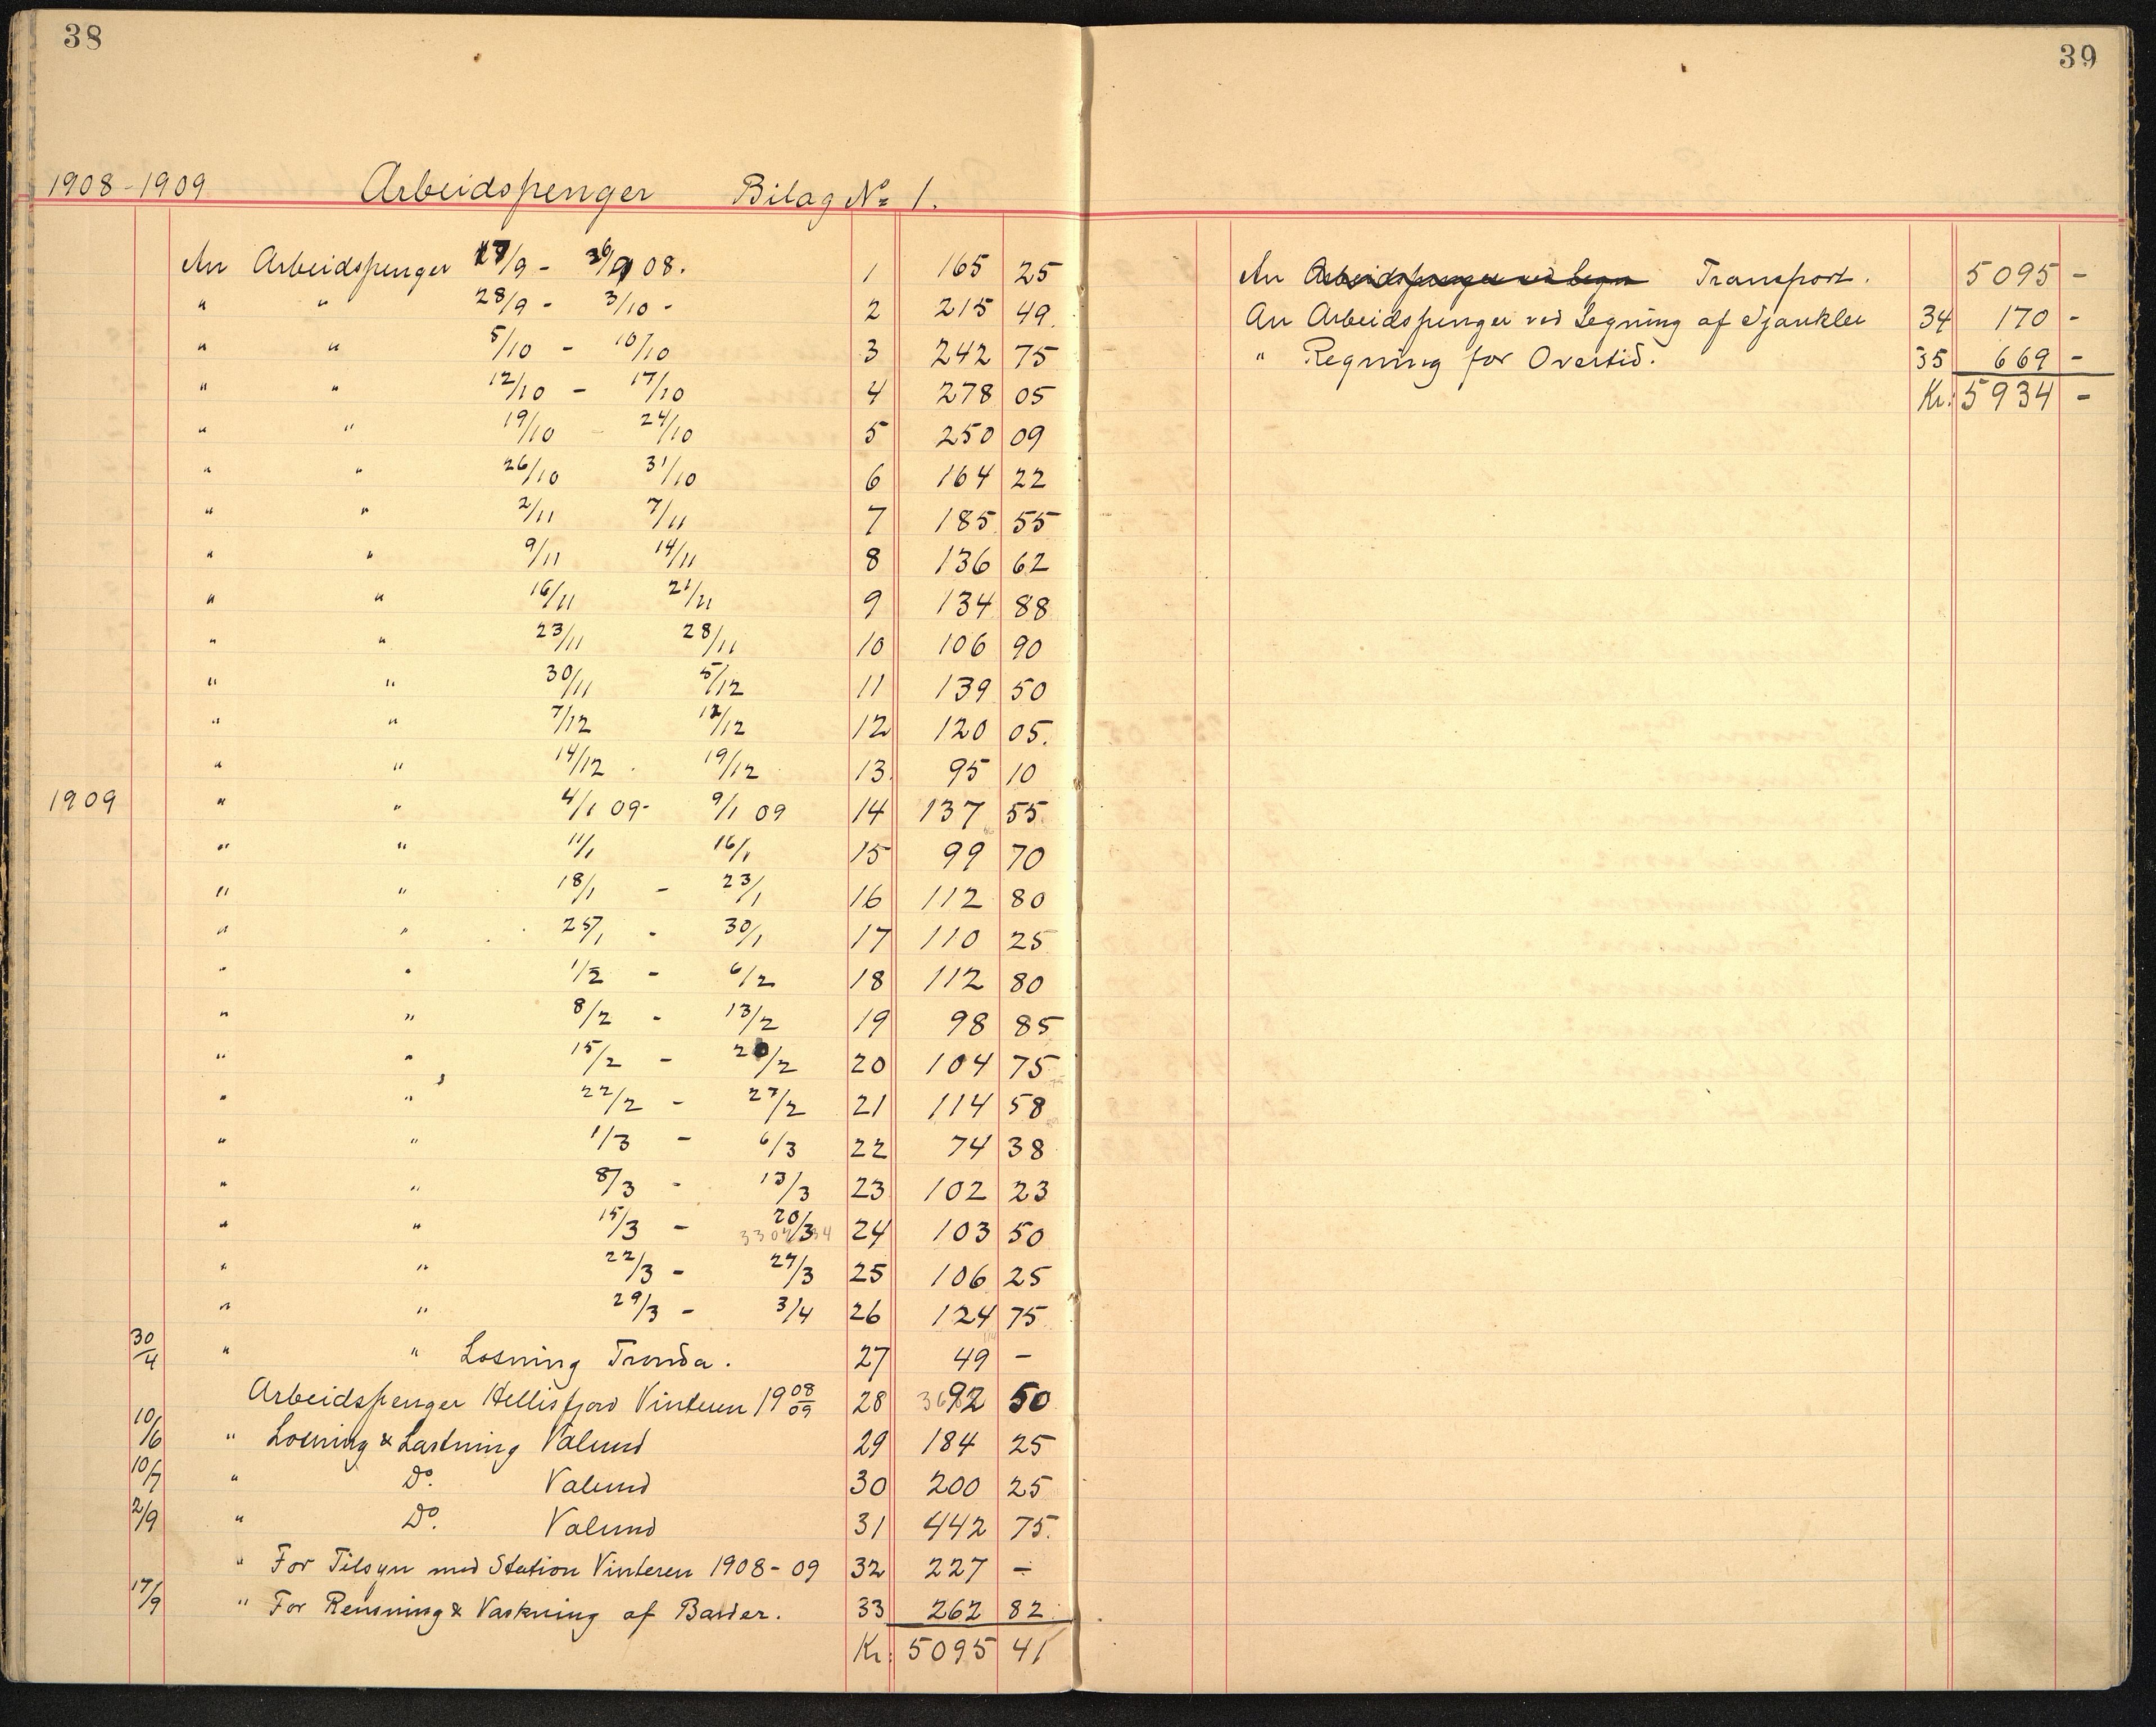 38
1908-1909 Arbeidspenger Bilag No 1.
An Arbeidspenger 17/9 - 26/9 08. 1 165 25
" " 28/9 - 3/10 - 2 215 49.
" " 5/10 - 10/10 3 242 75
" " 12/10 - 17/10 4 278 05
" " 19/10 - 24/10 5 250 09
" " 26/10 31/10 6 164 22
" " 2/11 7/11 7 185 55
" " 9/11 14/11 8 136 62
" " 16/11 21/11 9 134 88
" " 23/11 28/11 10 106 90
" " 30/11 5/12 11 139 50
" " 7/12 12/12 12 120 05.
" " 14/12 19/12 13 95 10
1909 " " 4/1 09- 9/1 09 14 137 55
" " 11/1 16/1 15 99 70
" " 18/1 - 23/1 16 112 80
" " 25/1 - 30/1 17 110 25
" " 1/2 - 6/2 18 112 80
" " 8/2 - 13/2 19 98 85
" " 15/2 - 20/2 20 104 75
" " 22/2 - 27/2 21 114 58
" " 1/3 - 6/3 22 74 38
" " 8/3 - 13/3 23 102 23
" " 15/3 - 20/3 24 103 50
" " 22/3 - 27/3 25 106 25
" " 29/3 - 3/4 26 124 75
30/4 " " Losning Tronda. 27 49 -
Arbeidspenger Hellisfjord Vinteren 1908/09 28 92 50
10/6 " Losning & Lastning Valund 29 184 25
10/7 " Do. Valund 30 200 25
2/9 " Do. Valund 31 442 75.
" For Tilsyn med Station Vinteren 1908-09 32 227 -
17/9 " For Rensning & Vaskning af Barder. 33 262 82
Kr. 5095 41
39
An Arbeidspenger ved Legn Transport. 5095 -
An Arbeidspenger ved Legning af 34 170 -
" Regning for Overtid. 35 669 -
Kr. 5934 -